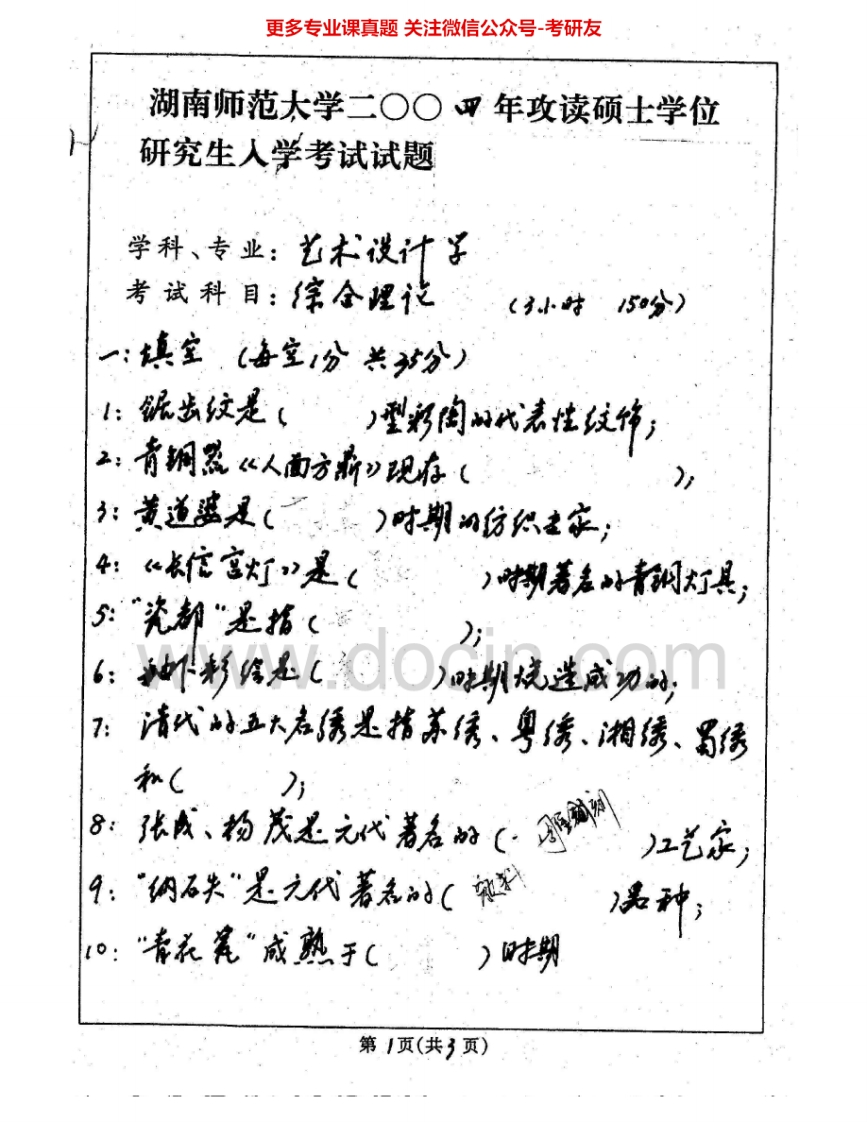 更多专业课真题 关注微信公众号-考研友
湖南师范大学二〇〇四年攻读硕士学位
研究生入学考试试题
学科、专业：艺术设计学
考试科目：综合理论 （3小时 150分）
一：填空 （每空1分 共35分）
1：锯齿纹是（ ）型彩陶的代表性纹饰；
2：青铜器《人面方鼎》现存（ ）；
3：黄道婆是（ ）时期的纺织专家；
4：《长信宫灯》是（ ）时期著名的青铜灯具；
5："瓷都"是指（ ）；
6：釉下彩绘是（ ）时期烧造成功的；
7：清代的五大名绣是指苏绣、粤绣、湘绣、蜀绣
和（ ）；
8：张成、杨茂是元代著名的（ ）工艺家；
9："纳石失"是元代著名的（ ）品种；
10："青花瓷"成熟于（ ）时期
www.docin.com
第1页(共3页)